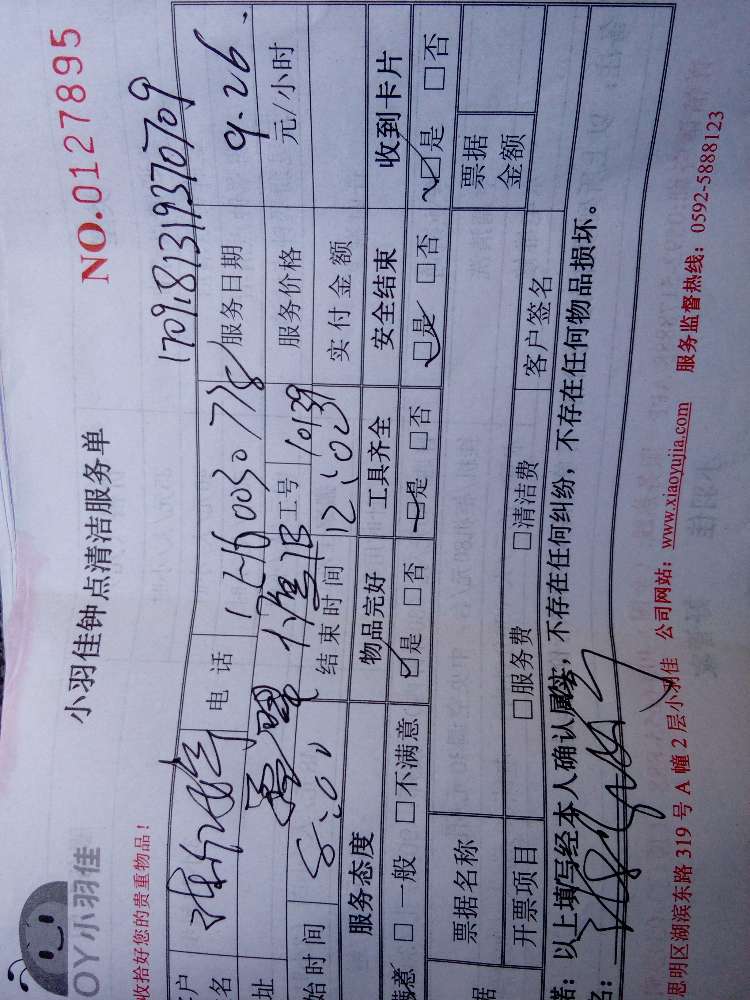 OY小羽佳
小羽佳钟点清洁服务单
NO.0127895
收拾好您的贵重物品！
170981319370709
户
名
电 话
服务日期 9.26
址
工号 10139
服务价格 元/小时
始时间 8:00
结束时间 12:03
实付金额
服务态度 物品完好 工具齐全 安全结束 收到卡片
满意 □ 一般 □ 不满意 □是 □否 □是 □否 □是 □否 □是 □否
据
票据名称
票据
金额
开票项目 □服务费 □清洁费 客户签名
诺：以上填写经本人确认属实，不存在任何纠纷，不存在任何物品损坏。
名：
思明区湖滨东路 319 号 A 幢 2 层小羽佳 公司网站：www.xiaoyujia.com 服务监督热线：0592-5888123